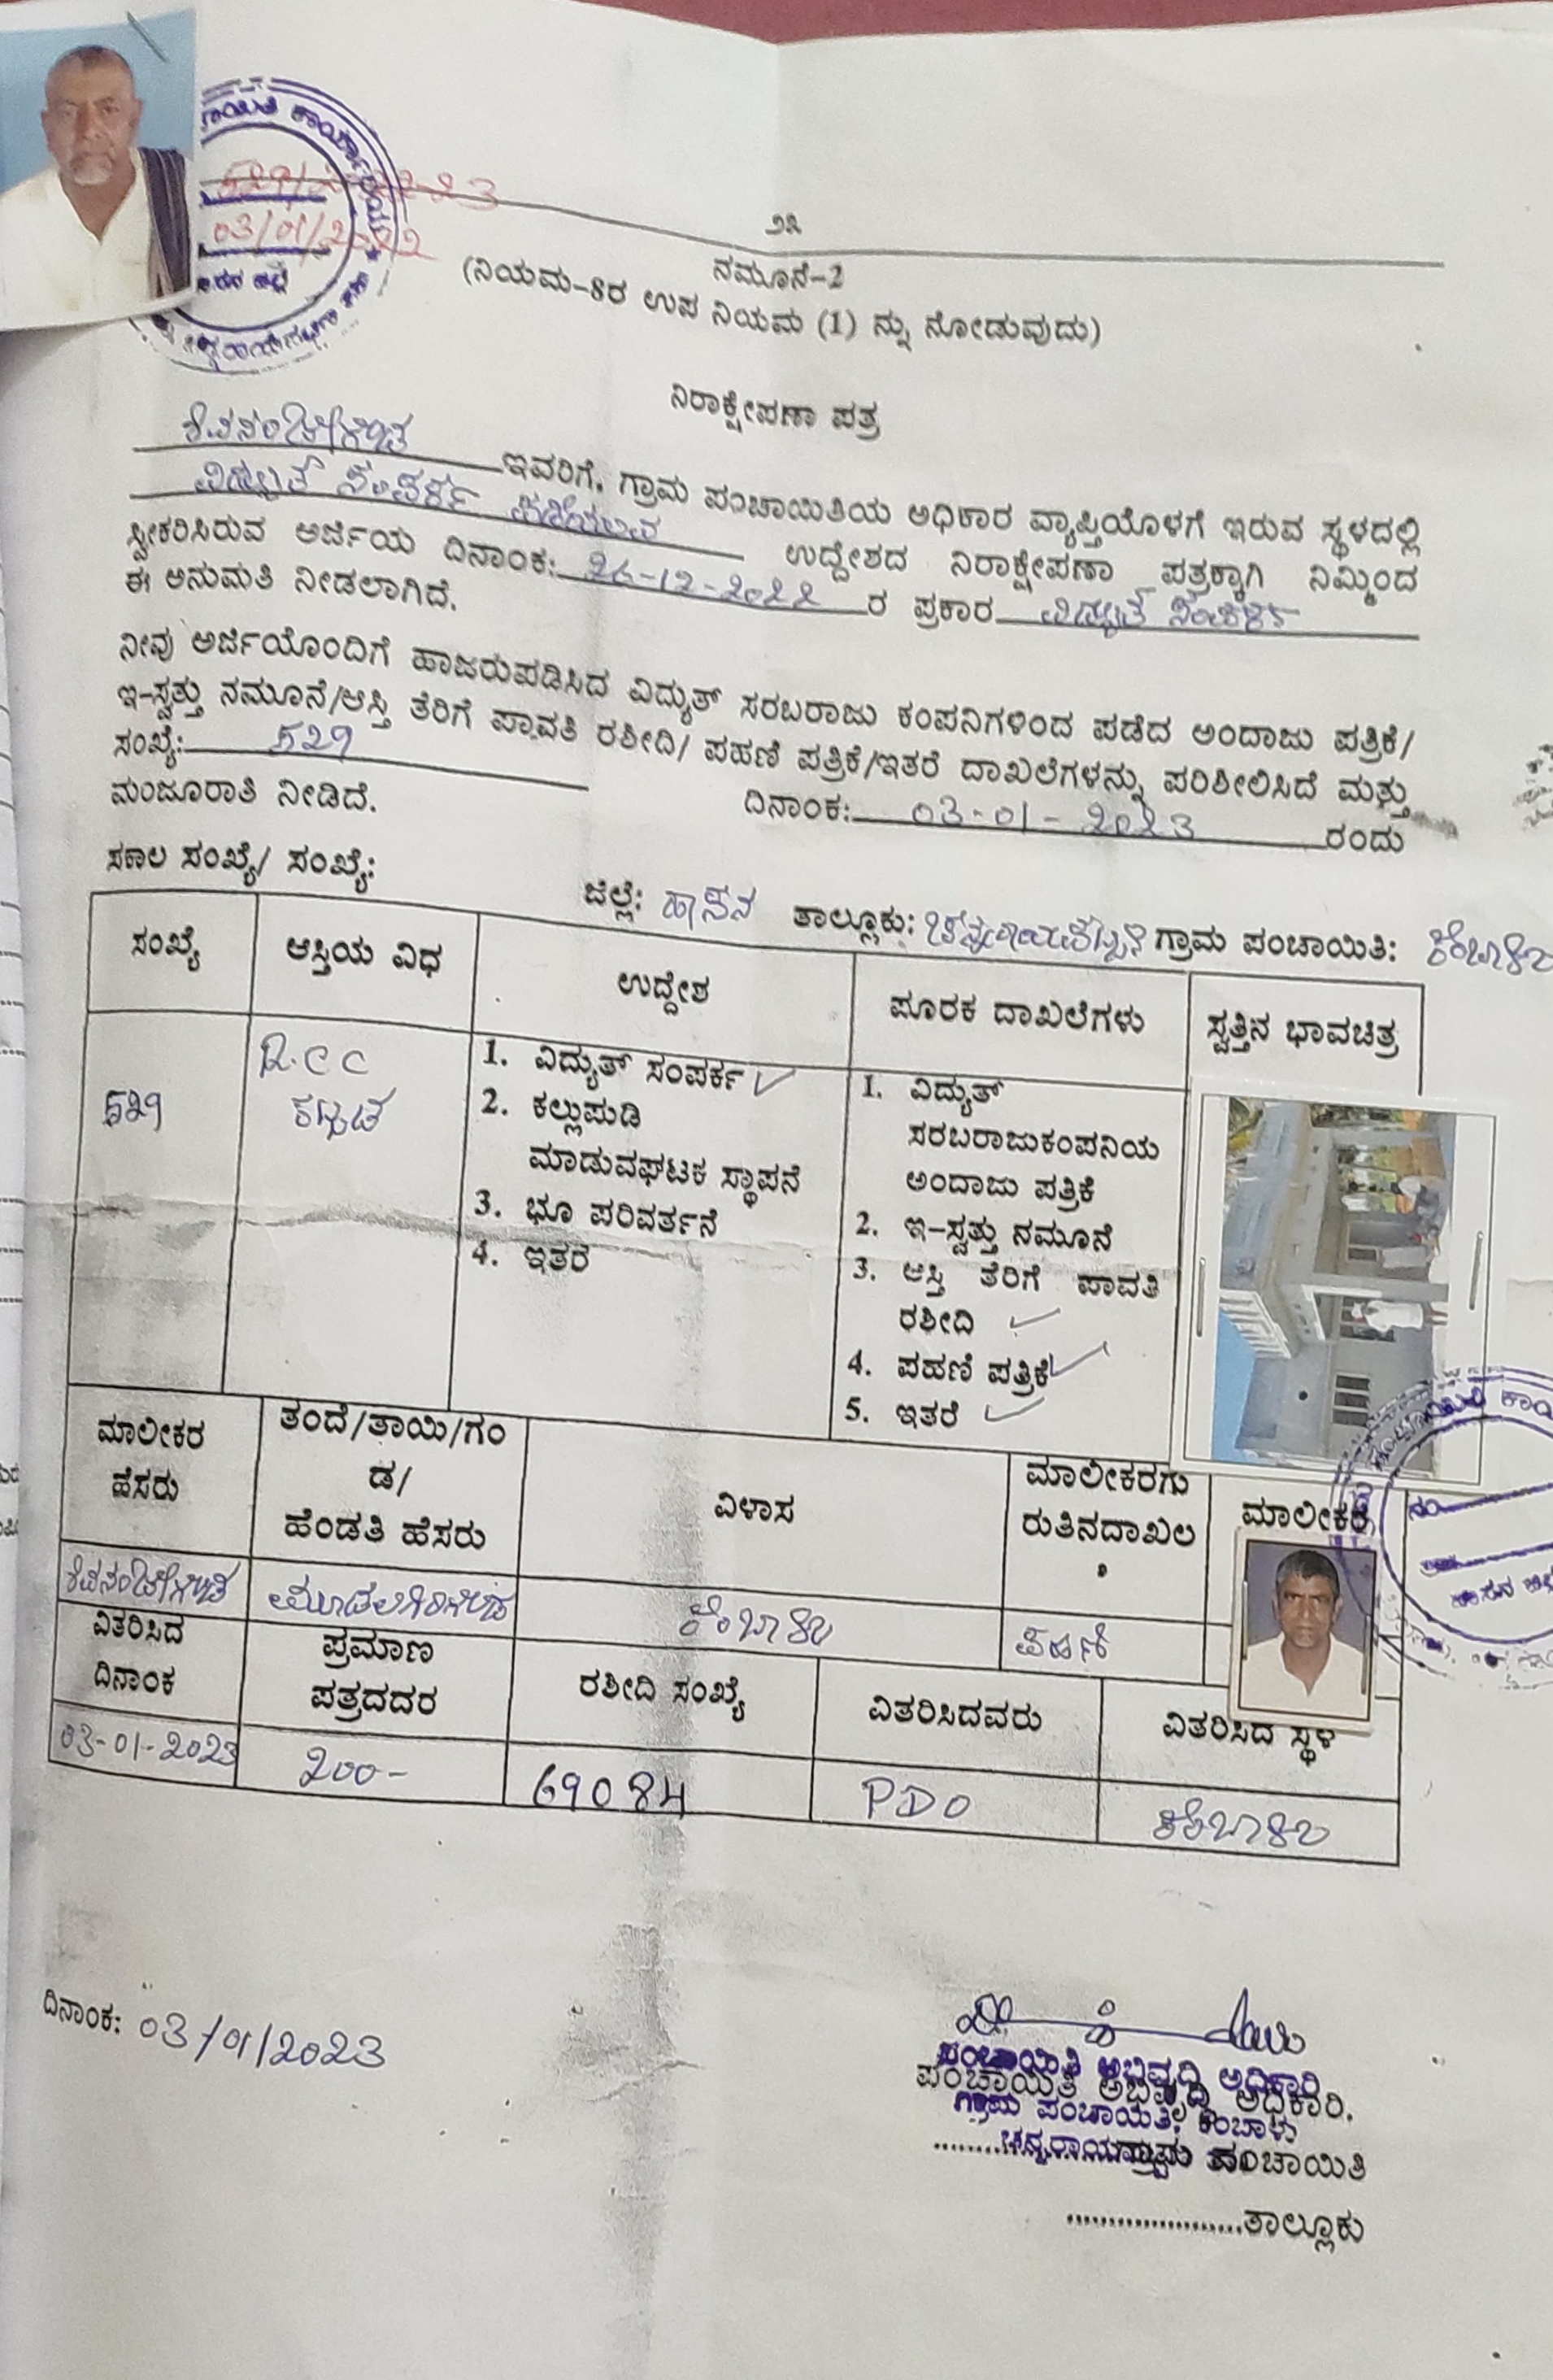 ಕಾರ್ಯಾಲಯ
529/2022-23
03/01/2022
೨೩
ನಮೂನೆ-2
(ನಿಯಮ-8ರ ಉಪ ನಿಯಮ (1) ನ್ನು ನೋಡುವುದು)
ನಿರಾಕ್ಷೇಪಣಾ ಪತ್ರ
ಶಿವನಂಜೇಗೌಡ ಇವರಿಗೆ, ಗ್ರಾಮ ಪಂಚಾಯಿತಿಯ ಅಧಿಕಾರ ವ್ಯಾಪ್ತಿಯೊಳಗೆ ಇರುವ ಸ್ಥಳದಲ್ಲಿ
ವಿದ್ಯುತ್ ಸಂಪರ್ಕ ಪಡೆಯಲು ಉದ್ದೇಶದ ನಿರಾಕ್ಷೇಪಣಾ ಪತ್ರಕ್ಕಾಗಿ ನಿಮ್ಮಿಂದ
ಸ್ವೀಕರಿಸಿರುವ ಅರ್ಜಿಯ ದಿನಾಂಕ: 26-12-2022 ರ ಪ್ರಕಾರ ವಿದ್ಯುತ್ ಸಂಪರ್ಕ
ಈ ಅನುಮತಿ ನೀಡಲಾಗಿದೆ.
ನೀವು ಅರ್ಜಿಯೊಂದಿಗೆ ಹಾಜರುಪಡಿಸಿದ ವಿದ್ಯುತ್ ಸರಬರಾಜು ಕಂಪನಿಗಳಿಂದ ಪಡೆದ ಅಂದಾಜು ಪತ್ರಿಕೆ/
ಇ-ಸ್ವತ್ತು ನಮೂನೆ/ಆಸ್ತಿ ತೆರಿಗೆ ಪಾವತಿ ರಶೀದಿ/ ಪಹಣಿ ಪತ್ರಿಕೆ/ಇತರೆ ದಾಖಲೆಗಳನ್ನು ಪರಿಶೀಲಿಸಿದೆ ಮತ್ತು
ಸಂಖ್ಯೆ: 529 ದಿನಾಂಕ: 03-01-2023 ರಂದು
ಮಂಜೂರಾತಿ ನೀಡಿದೆ.
ಸಕಾಲ ಸಂಖ್ಯೆ/ ಸಂಖ್ಯೆ:
ಜಿಲ್ಲೆ: ಹಾಸನ ತಾಲ್ಲೂಕು: ಚನ್ನರಾಯಪಟ್ಟಣ ಗ್ರಾಮ ಪಂಚಾಯಿತಿ: ಕೆಂಬಾಳು
ಸಂಖ್ಯೆ ಆಸ್ತಿಯ ವಿಧ ಉದ್ದೇಶ ಪೂರಕ ದಾಖಲೆಗಳು ಸ್ವತ್ತಿನ ಭಾವಚಿತ್ರ
529
R.C.C
ಕಟ್ಟಡ
1. ವಿದ್ಯುತ್ ಸಂಪರ್ಕ ✓
2. ಕಲ್ಲುಪುಡಿ
ಮಾಡುವಘಟಕ ಸ್ಥಾಪನೆ
3. ಭೂ ಪರಿವರ್ತನೆ
4. ಇತರ
1. ವಿದ್ಯುತ್
ಸರಬರಾಜುಕಂಪನಿಯ
ಅಂದಾಜು ಪತ್ರಿಕೆ
2. ಇ-ಸ್ವತ್ತು ನಮೂನೆ
3. ಆಸ್ತಿ ತೆರಿಗೆ ಪಾವತಿ
ರಶೀದಿ ✓
4. ಪಹಣಿ ಪತ್ರಿಕೆ ✓
5. ಇತರೆ ✓
ಮಾಲೀಕರ
ಹೆಸರು
ತಂದೆ/ತಾಯಿ/ಗಂ
ಡ/
ಹೆಂಡತಿ ಹೆಸರು
ವಿಳಾಸ
ಮಾಲೀಕರಗು
ರುತಿನದಾಖಲ
ಮಾಲೀಕರ
ಶಿವನಂಜೇಗೌಡ ಮೂಡಲಗಿರಿಗೌಡ ಕೆಂಬಾಳು ಪಹಣಿ
ವಿತರಿಸಿದ
ದಿನಾಂಕ
ಪ್ರಮಾಣ
ಪತ್ರದದರ
ರಶೀದಿ ಸಂಖ್ಯೆ ವಿತರಿಸಿದವರು ವಿತರಿಸಿದ ಸ್ಥಳ
03-01-2023 200- 69084 PDO ಕೆಂಬಾಳು
ದಿನಾಂಕ: 03/01/2023
ಪಂಚಾಯಿತಿ ಅಭಿವೃದ್ಧಿ ಅಧಿಕಾರಿ
ಪಂಚಾಯಿತಿ ಅಭಿವೃದ್ಧಿ ಅಧಿಕಾರಿ.
ಗ್ರಾಮ ಪಂಚಾಯಿತಿ, ಕೆಂಬಾಳು
......................ಗ್ರಾಮ ಪಂಚಾಯಿತಿ
......................ತಾಲ್ಲೂಕು